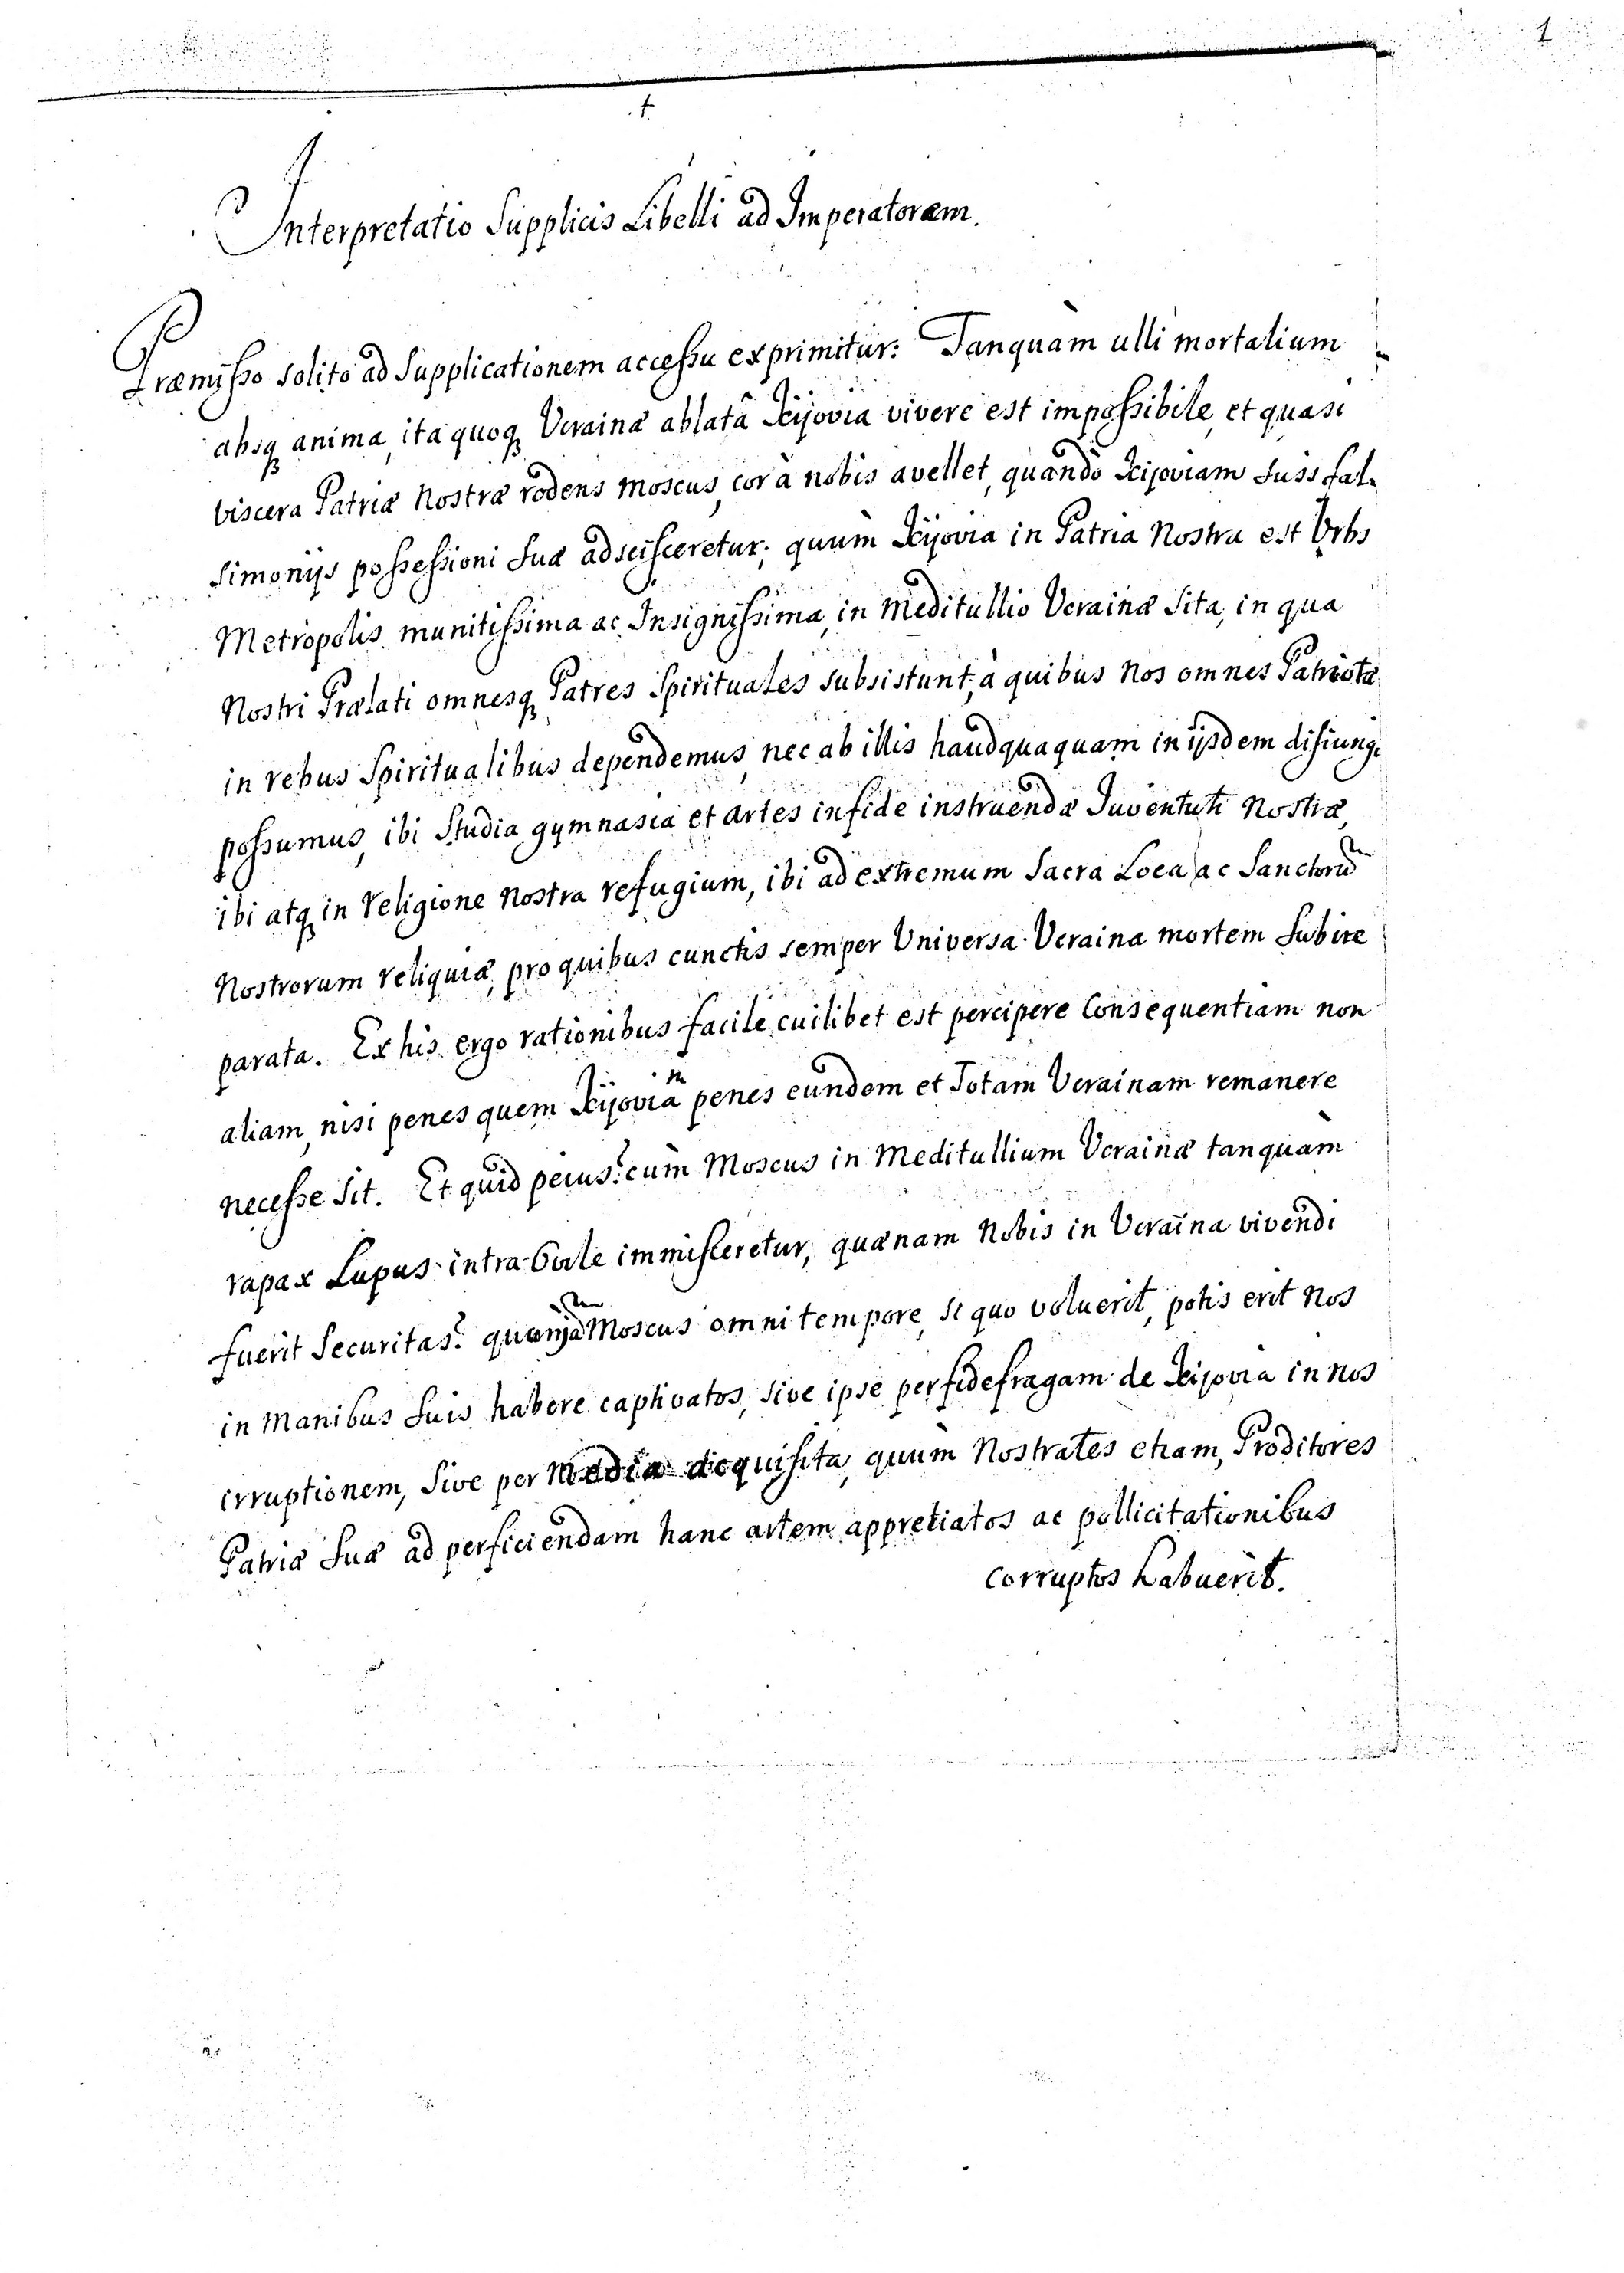 1
Interpretatio Supplicis Libelli ad Imperatorem.
Præmisso solito ad Supplicationem accessu exprimitur: Tanquàm ulli mortalium
absq anima, ita quoq Ucrainæ ablatâ Kijoviâ vivere est impossibile, et quasi
viscera Patriæ Nostræ rodens Moscus, cor à nobis avellet, quandò Kijoviam suis fal-
simonijs possessioni suæ adscisceretur; quum Kijovia in Patria Nostra est Urbs
Metropolis munitissima ac Insignissima, in Meditullio Ucrainæ sita, in qua
Nostri Prælati omnesq Patres Spirituales subsistunt, à quibus Nos omnes Patriotæ
in rebus Spiritualibus dependemus, nec ab illis haudquaquam in ijsdem disiungi
possumus, ibi Studia gymnasia et artes in fide instruendæ Juventuti Nostræ,
ibi atq in religione nostra refugium, ibi ad extremum Sacra Loca ac Sanctorum
Nostrorum reliquiæ, pro quibus cunctis semper Universa Ucraina mortem subire
parata. Ex his ergo rationibus facile cuilibet est percipere Consequentiam non
aliam, nisi penes quem Kijoviam penes eundem et Totam Ucrainam remanere
necesse sit. Et quid peius? cùm Moscus in Meditullium Ucrainæ tanquàm
rapax Lupus intra Ovile immisceretur, quænam Nobis in Ucraina vivendi
fuerit Securitas? quoniam Moscus omni tempore, si quo voluerit, potis erit Nos
in Manibus suis habere captivatos, sive ipse per fidefragam de Kijovia in nos
irruptionem, sive per Media acquisita, quùm Nostrates etiam, Proditores
Patriæ suæ ad perficiendam hanc artem appretiatos ac pollicitationibus
corruptos habuerit.